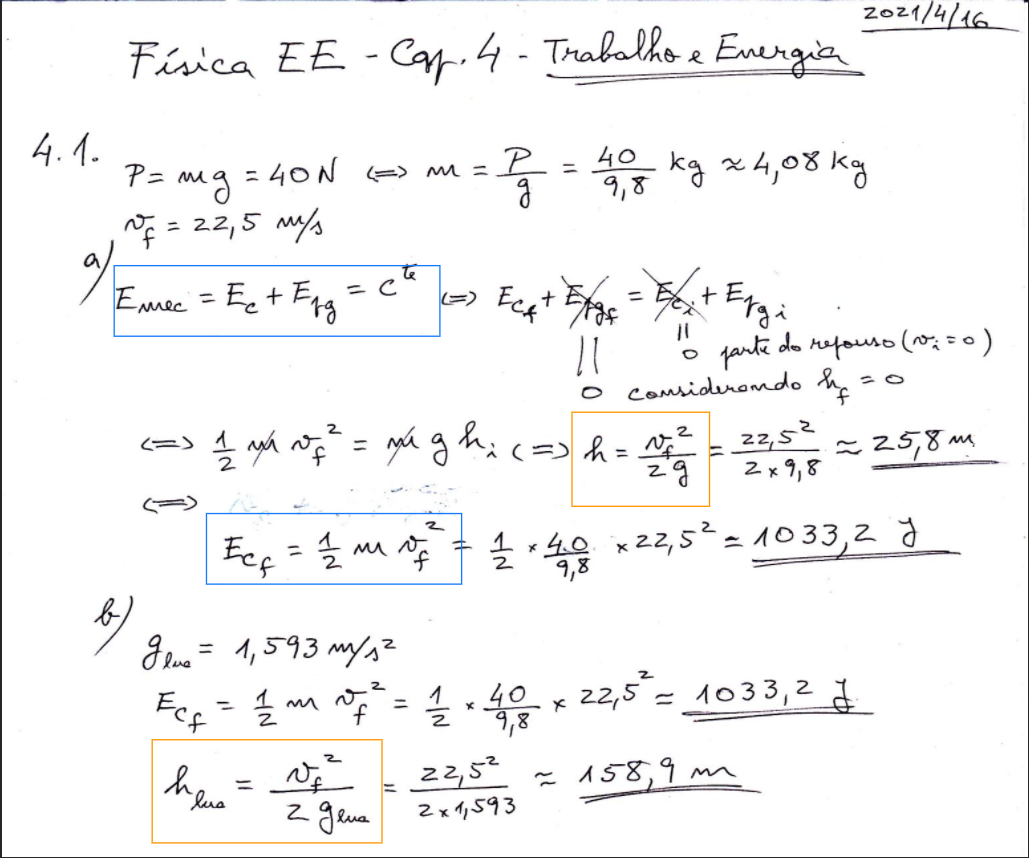 2021/4/16
Física EE - Cap. 4 - Trabalho e Energia
4.1.
P = mg = 40N ⇔ m = P/g = 40/9,8 kg ≈ 4,08 kg
v_f = 22,5 m/s
a)
E_mec = E_c + E_pg = c^te ⇔ E_cf + E_pgf = E_ci + E_pgi
|| 0 parte do repouso (v_i = 0)
|| 0 considerando h_f = 0
⇔ 1/2 m v_f² = m g h_i ⇔ h = v_f²/2g = 22,5²/2×9,8 ≈ 25,8 m
⇔
E_cf = 1/2 m v_f² = 1/2 × 40/9,8 × 22,5² ≃ 1033,2 J
b)
g_lua = 1,593 m/s²
E_cf = 1/2 m v_f² = 1/2 × 40/9,8 × 22,5² ≃ 1033,2 J
h_lua = v_f²/2 g_lua = 22,5²/2×1,593 ≈ 158,9 m